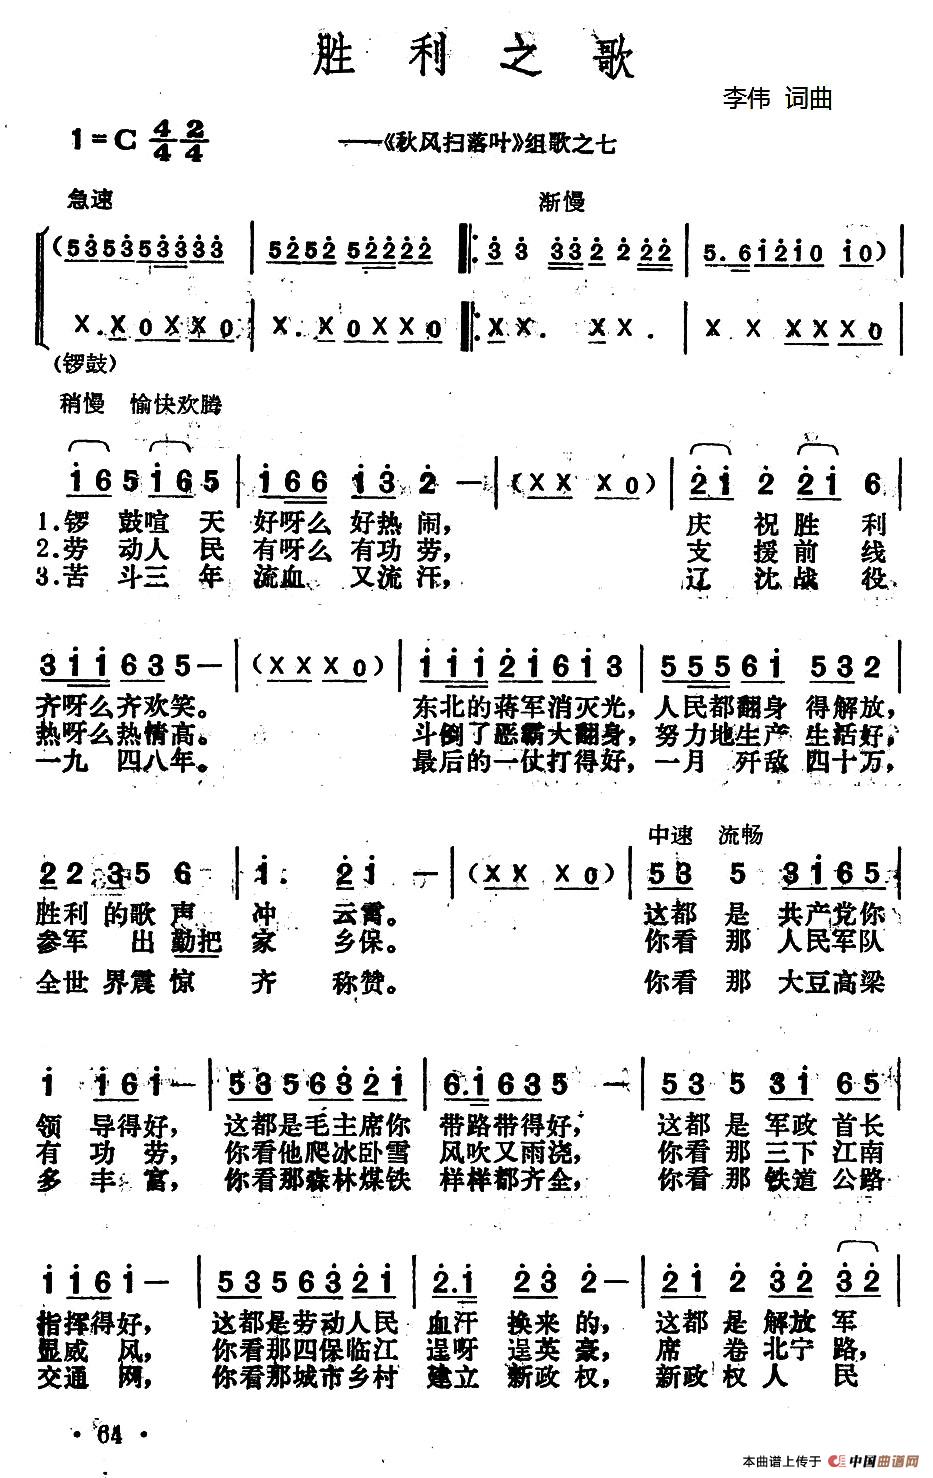 胜利之歌
李伟 词曲
1=C 4/4 2/4
——《秋风扫落叶》组歌之七
急速 渐慢
(53535333333 | 5252 522222 |: 3 3 332 222 | 5.61210 10) |
X.X0XX0 | X.X0XX0 |: XX. XX. | X X XXX0 |
(锣鼓)
稍慢 愉快欢腾
165165 | 166 132— | (XX X0) | 21 2 21 6 |
1.锣鼓喧天 好呀么好热闹, 庆祝胜利
2.劳动人民 有呀么有功劳, 支援前线
3.苦斗三年 流血 又流汗, 辽沈战役
311635— | (XX X0) | 11121613 | 555561 532 |
齐呀么齐欢笑。 东北的蒋军消灭光, 人民都翻身 得解放,
热呀么热情高。 斗倒了恶霸大翻身, 努力地生产 生活好,
一九四八年。 最后的一仗打得好, 一月歼敌四十万,
中速 流畅
22 35 6 | 1. 21— | (XX X0) | 53 5 3165 |
胜利的歌声 冲 云霄。 这都是共产党你
参军 出勤把 家 乡保。 你看那人民军队
全世界震惊 齐 称赞。 你看那大豆高梁
1 161— | 53563 21 | 6.1635— | 53 5 31 65 |
领导得好, 这都是毛主席你 带路带得好, 这都是军政首长
有功劳, 你看他爬冰卧雪 风吹又雨浇, 你看那三下江南
多丰富, 你看那森林煤铁 样样都齐全, 你看那铁道公路
1161— | 53563 21 | 2.1 23 2— | 21 2 32 32 |
指挥得好, 这都是劳动人民 血汗换来的, 这都是解放军
显威风, 你看那四保临江 逞呀逞英豪, 席卷北宁路,
交通网, 你看那城市乡村 建立新政权, 新政权人民
·64·
本曲谱上传于 中国曲谱网